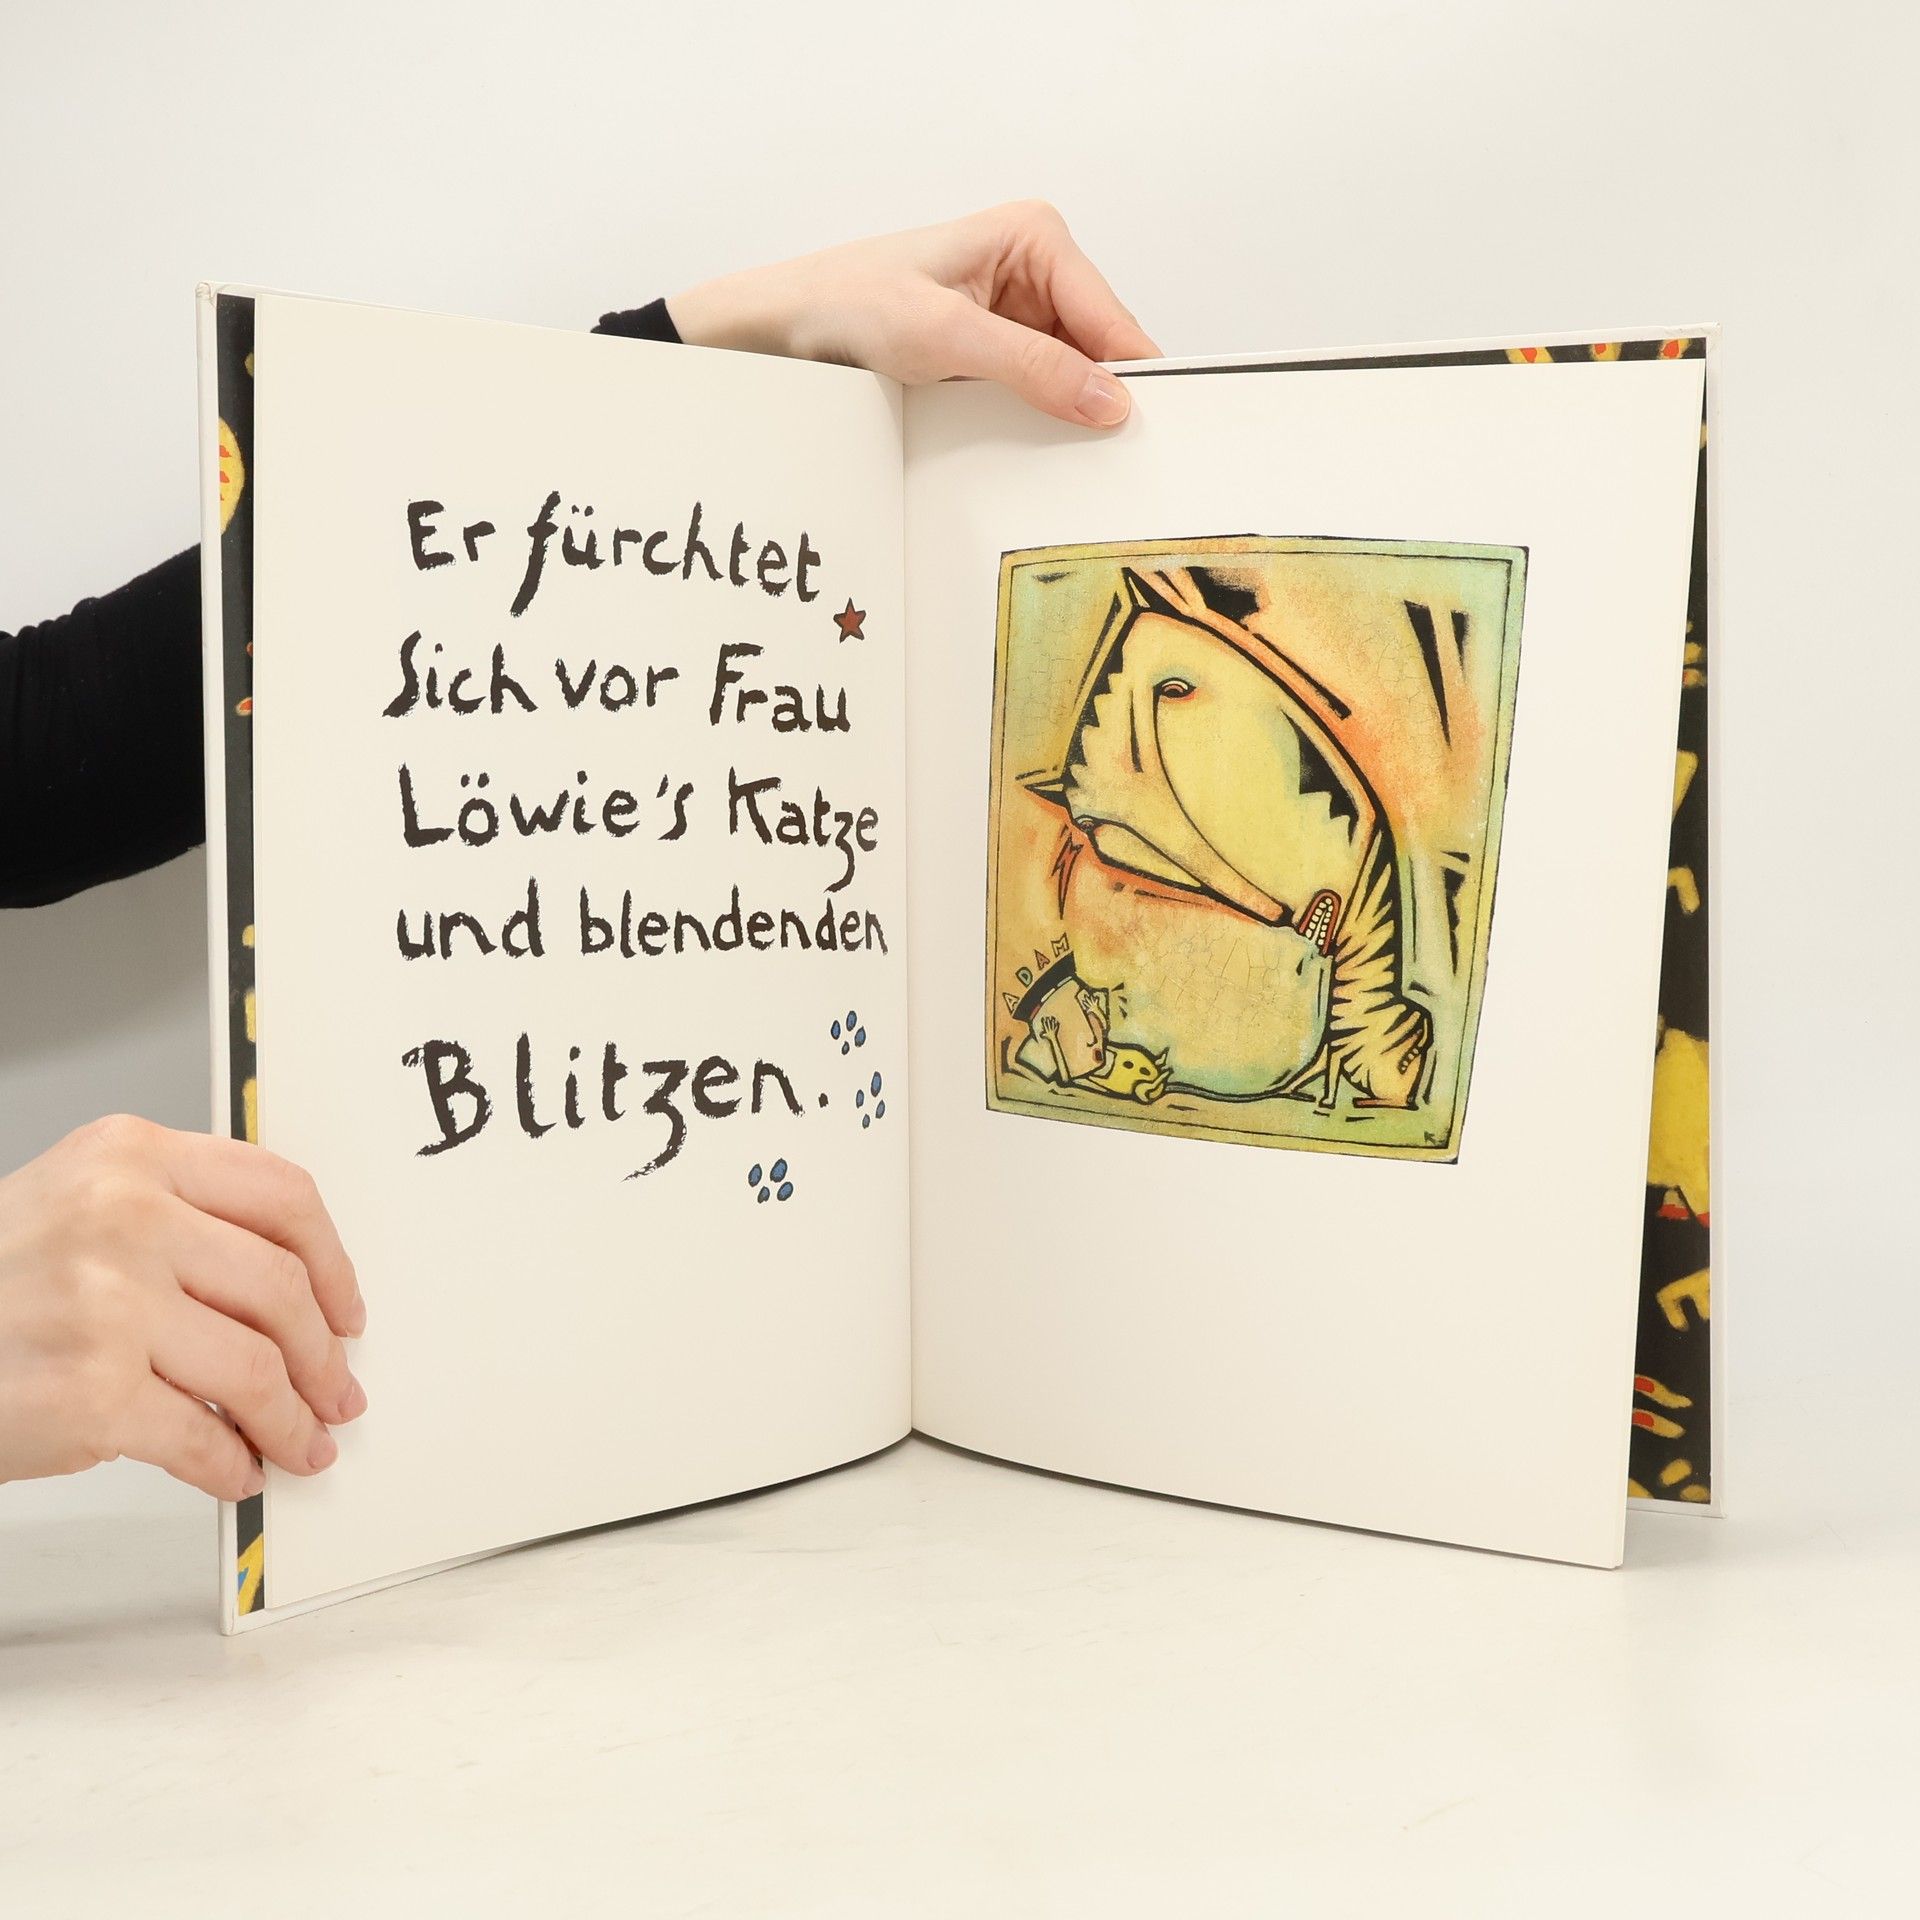 Er fürchtet
Sich vor Frau
Löwie's Katze
und blendenden
Blitzen.
ADAM